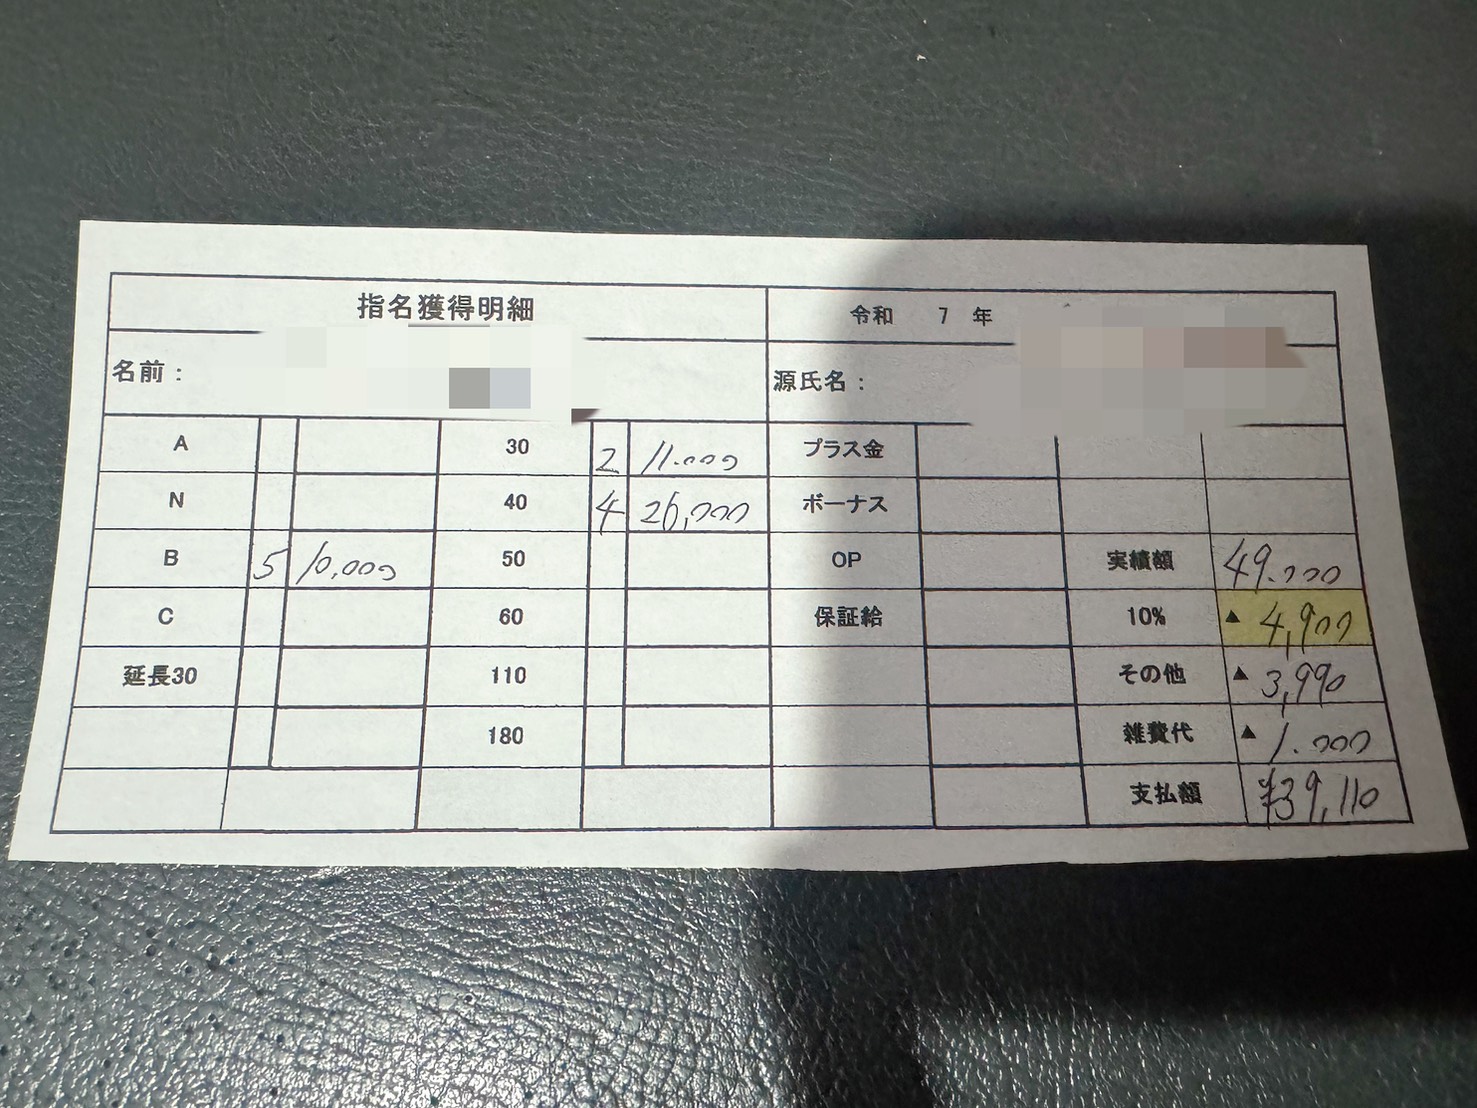 指名獲得明細 令和 7 年
名前： 源氏名：
A 30 2 11.000 プラス金
N 40 4 26,000 ボーナス
B 5 10,000 50 OP 実績額 49.000
C 60 保証給 10% ▲ 4,900
延長30 110 その他 ▲ 3,990
180 雑費代 ▲ 1.000
支払額 ¥39,110